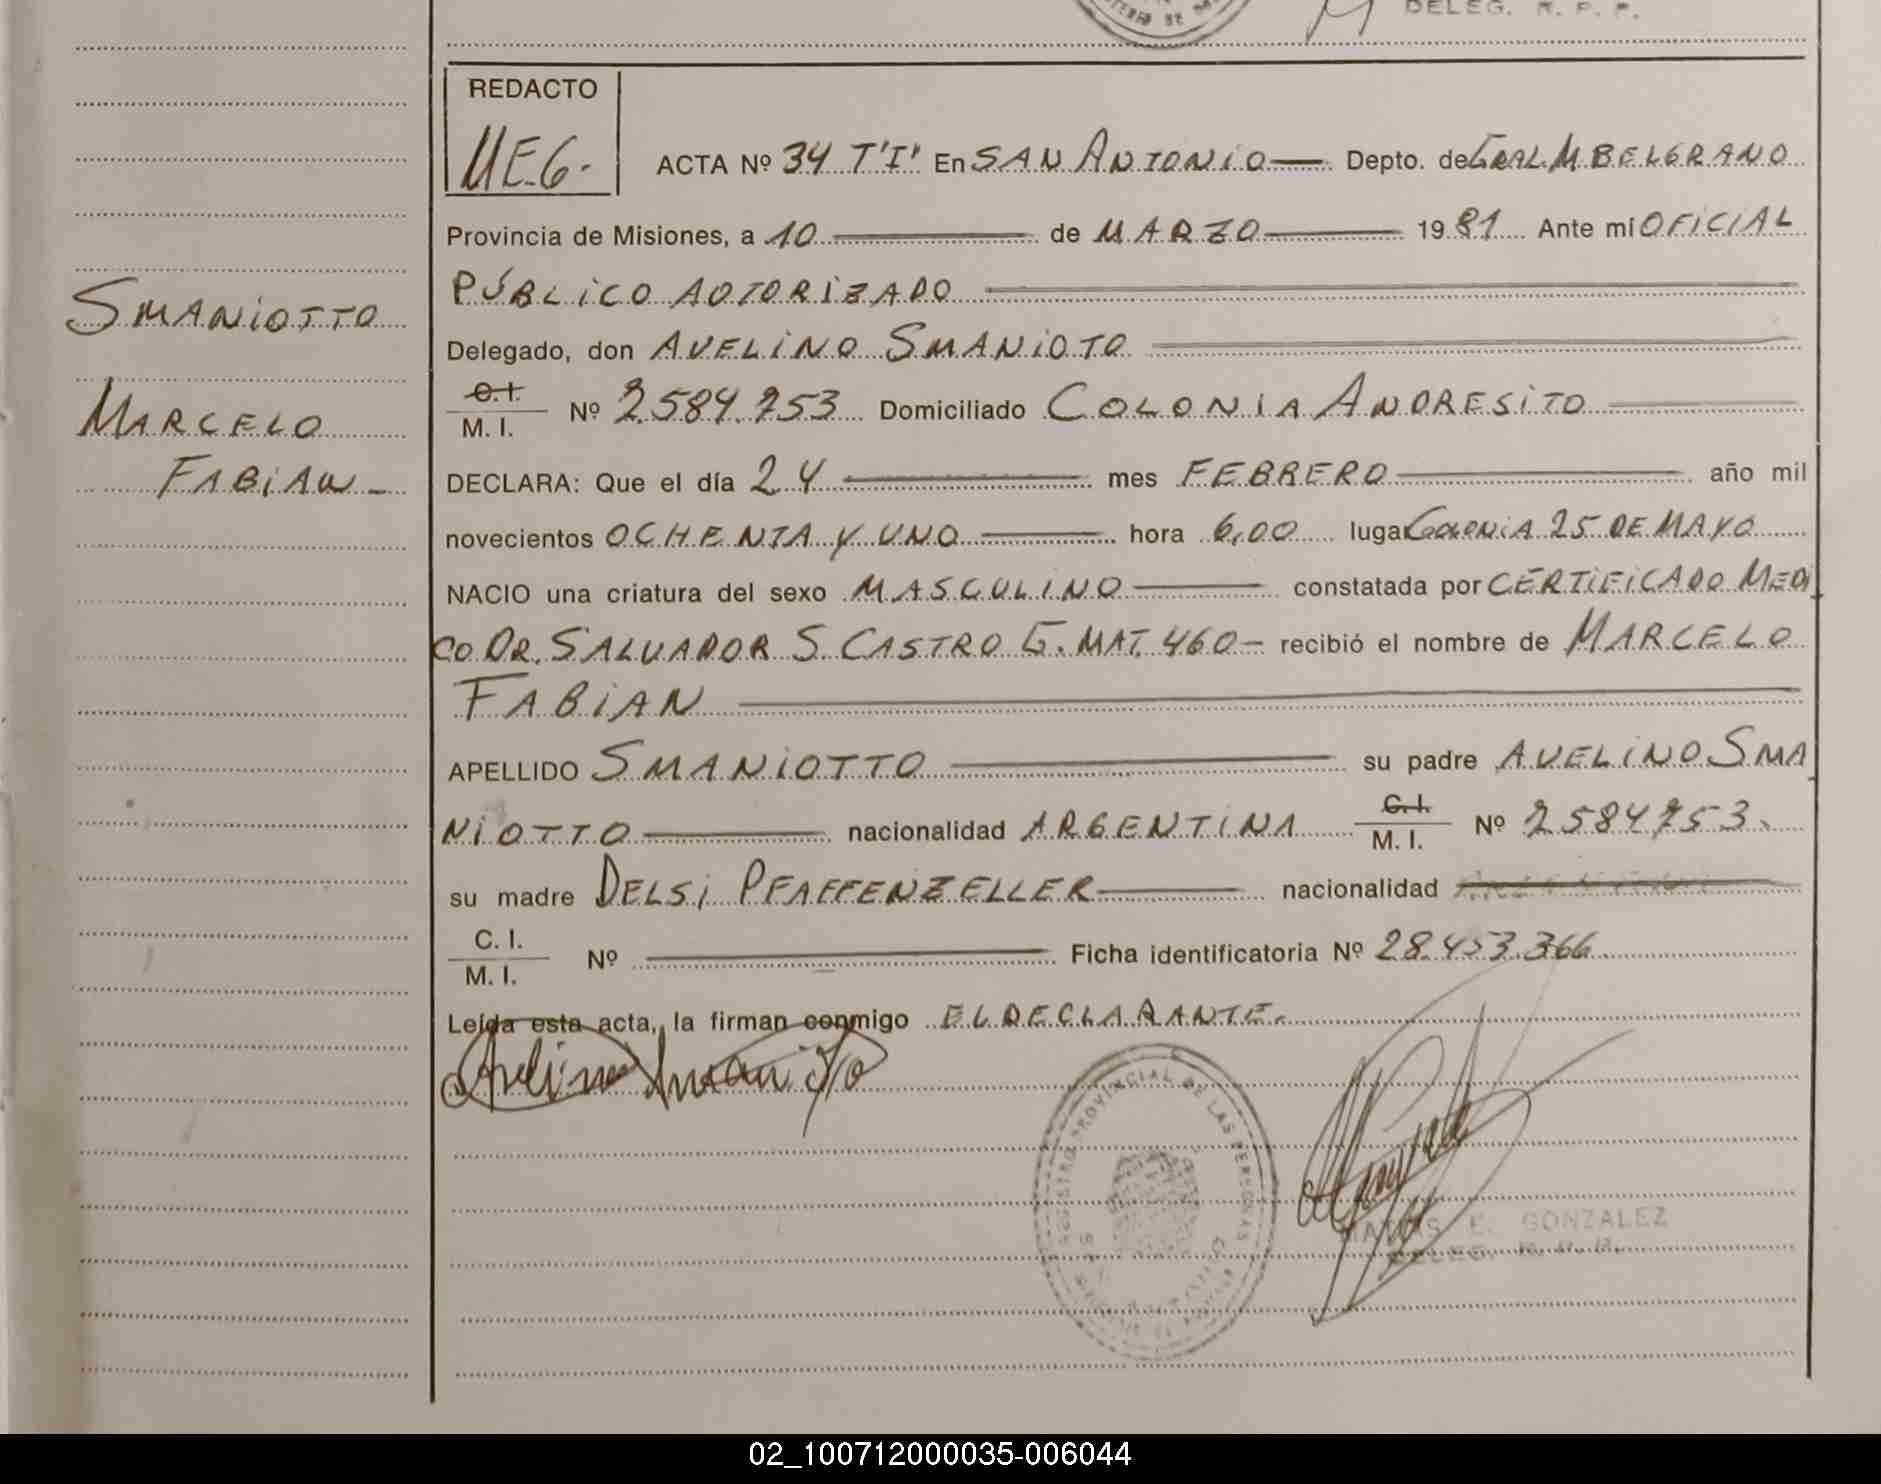 DELEG. R. P. P.
REDACTO
MEG.
ACTA Nº 34 T"I" En SAN ANTONIO Depto. de GRAL. M. BELGRANO
Provincia de Misiones, a 10 de MARZO 1981 Ante mí OFICIAL
PÚBLICO AUTORIZADO
SMANIOTTO
Delegado, don AVELINO SMANIOTO
C. I.
M. I. Nº 2.584.753 Domiciliado COLONIA ANDRESITO
MARCELO
FABIAN
DECLARA: Que el día 24 mes FEBRERO año mil
novecientos OCHENTA Y UNO hora 6,00 lugar COLONIA 25 DE MAYO
NACIO una criatura del sexo MASCULINO constatada por CERTIFICADO MEDI
CO DR. SALVADOR S. CASTRO G. MAT. 460 - recibió el nombre de MARCELO
FABIAN
APELLIDO SMANIOTTO su padre AVELINO SMA
NIOTTO nacionalidad ARGENTINA C. I. M. I. Nº 2584753.
su madre DELSI PFAFFENZELLER nacionalidad
C. I.
M. I. Nº Ficha identificatoria Nº 28.453.366
Leída esta acta, la firman conmigo EL DECLARANTE.
Avelino Smanioto
REGISTRO PROVINCIAL DE LAS PERSONAS
MATIAS E. GONZALEZ
DELEG. R. P. P.
02_100712000035-006044